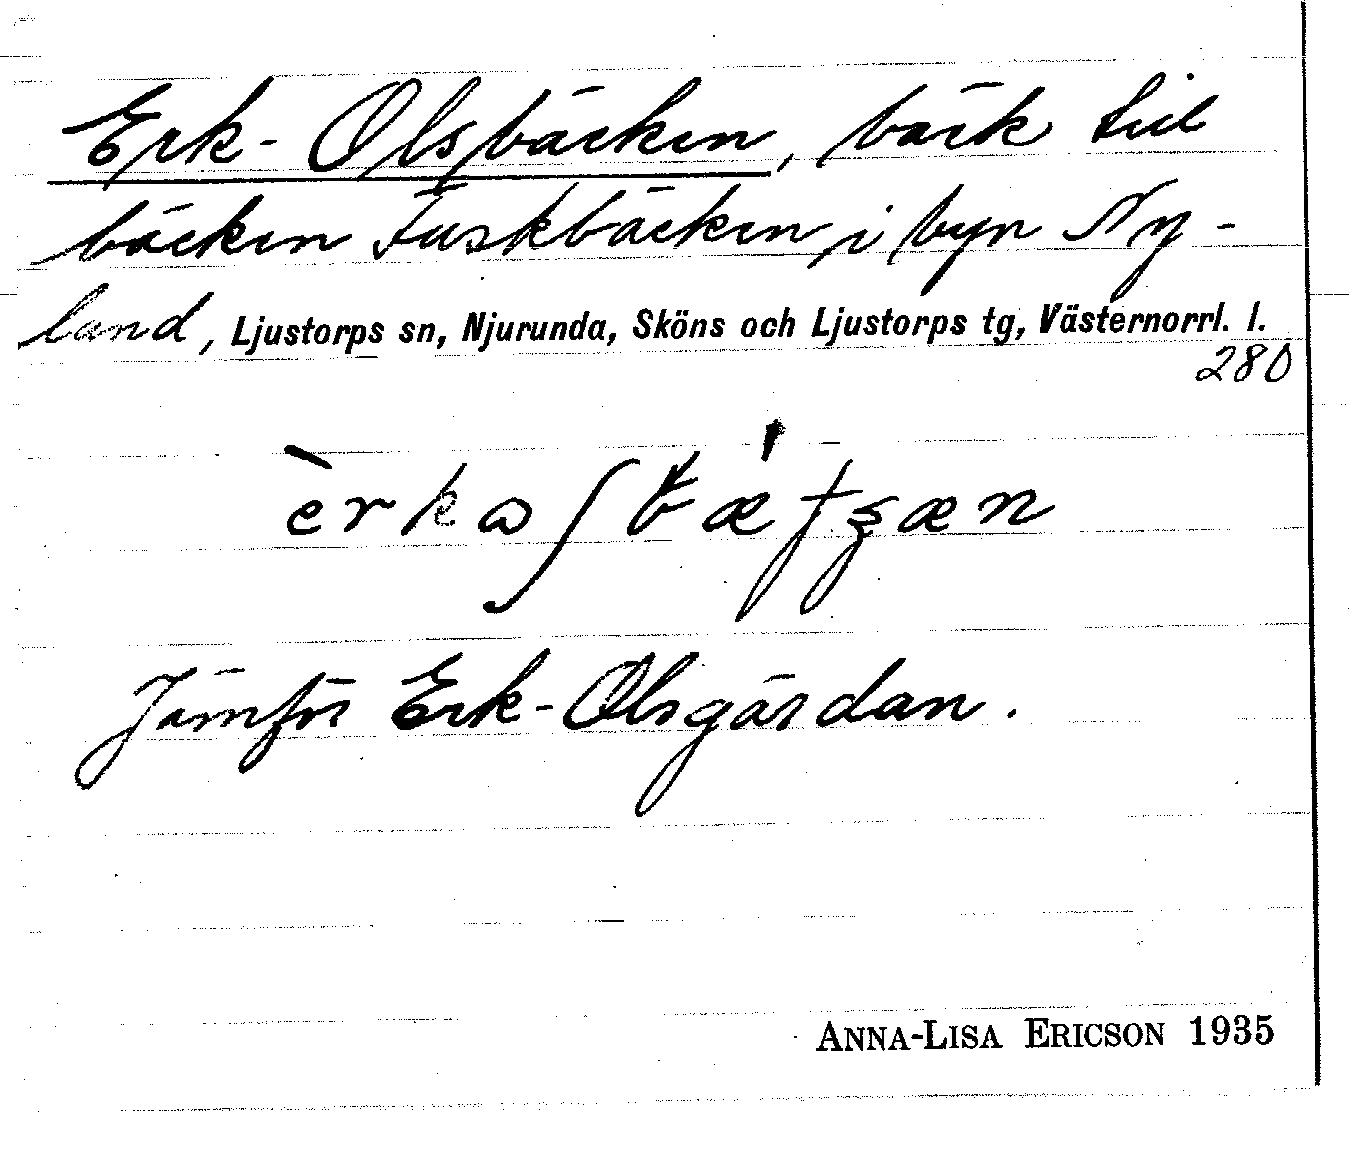 Erk-Olsbäcken, bäck till
bäcken Fuskbäcken i byn Ny-
land, Ljustorps sn, Njurunda, Sköns och Ljustorps tg, Västernorrl. l.
280
Jämför Erk-Olsgårdan.
ANNA-LISA ERICSON 1935